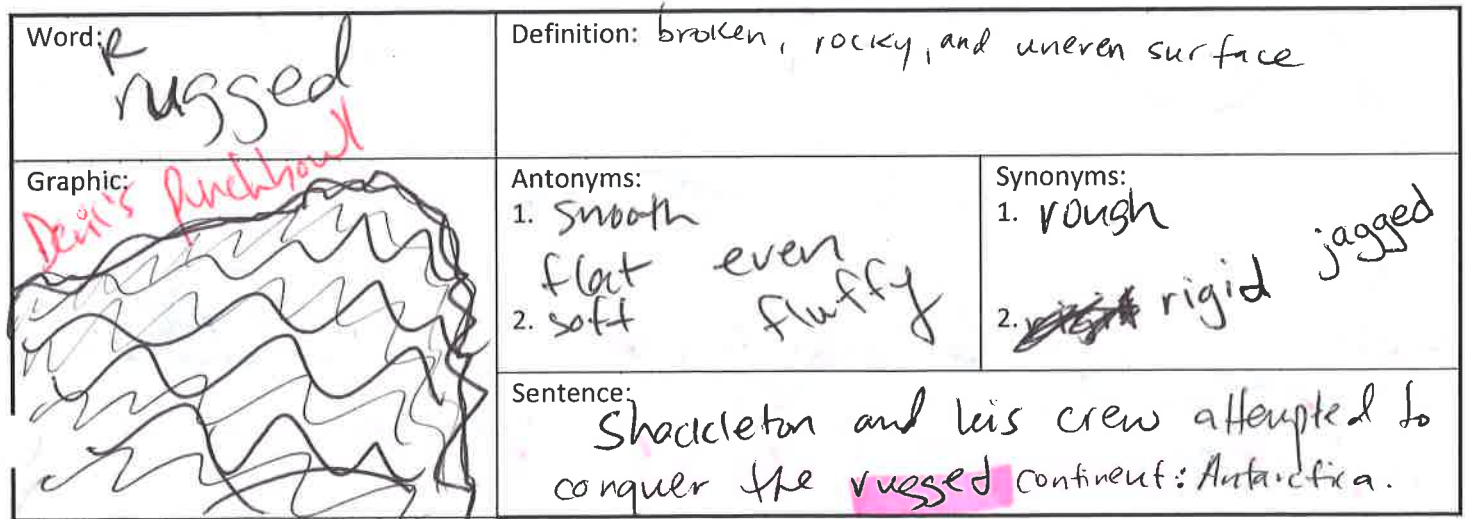 Word: R
rugged
Definition: broken, rocky, and uneven surface
Graphic:
Devil's Punchbowl
Antonyms:
1. smooth
flat even
2. soft fluffy
Synonyms:
1. rough
2. rigid jagged
Sentence:
Shackleton and his crew attempted to
conquer the rugged continent: Antarctica.